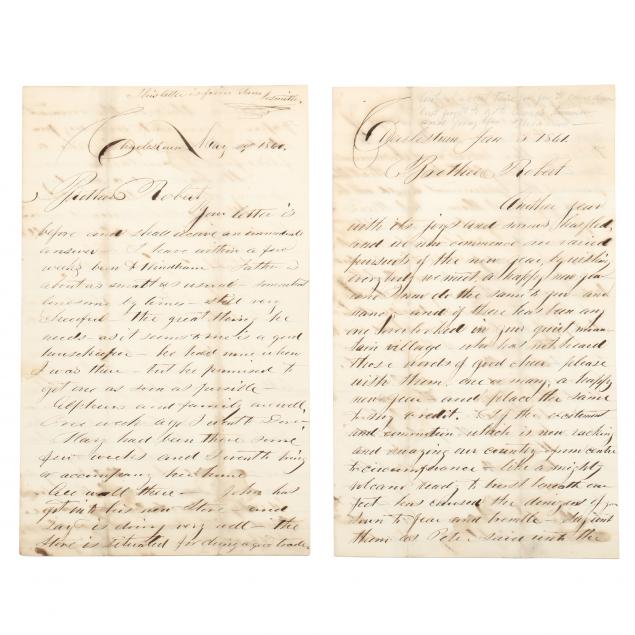 This letter is from
Smith
May 1860.
Brother Robert,
Your letter is
before and shall receive an immediate
answer I have within a few
weeks been to Windham Father is
about as smart as usual somewhat
lonesome by times still very
cheerful the great thing he
needs as it seems to me is a good
housekeeper he had none when
I was there but he promised to
get one as soon as possible
Alpheus and family are well,
One week ago I went to
Mary had been there some
few weeks and I went to bring
or accompany her home
All well there John has
got into his new Store and
says is doing very well the
Store is situated for doing a good trade
Jan 1861.
Brother Robert
Another year
with its joys and sorrows has fled,
and we now commence the varied
pursuits of the new year, by wishing
everybody we meet a happy new year
and I now do the same to you and
Nancy and if there has been any
one overlooked in your quiet moun-
tain village who has not heard
those words of good cheer please
wish them, one or many, a happy
new year and place the same
to my credit. & If the excitement
and commotion which is now racking
and our country from centre
to circumference like a mighty
volcano ready to burst beneath our
feet has caused the denizens of your
town to fear and tremble say unto
them as Peter said unto the